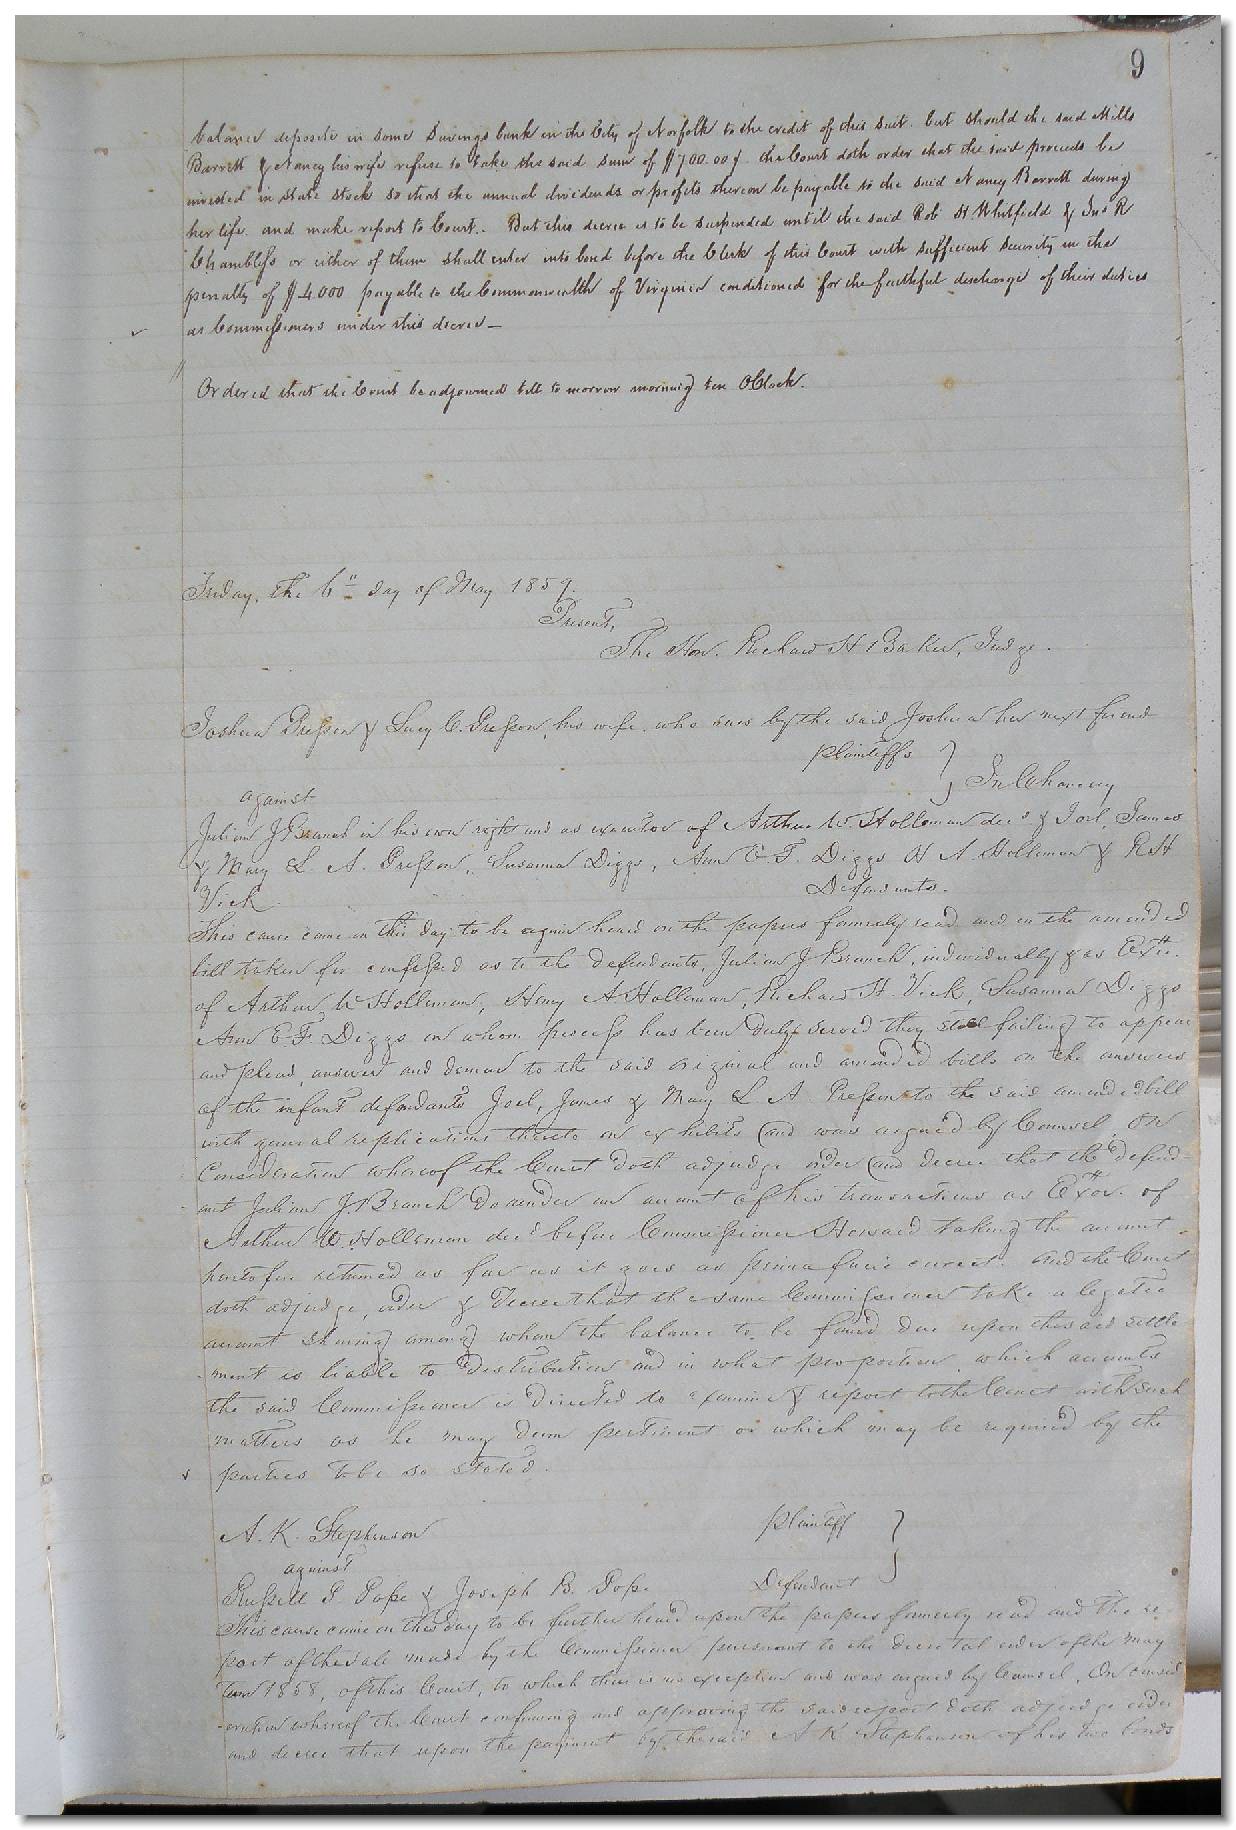 9
balance deposite in some Savings bank in the City of Norfolk to the credit of this suit. but should the said Mills
Barrett & Nancy his wife refuse to take the said sum of $700.00 the Court doth order that the said proceeds be
invested in state stock so that the annual dividends or profits thereon be payable to the said Nancy Barrett during
her life. and make report to Court. But this decree is to be suspended until the said Rob H Whitfield & Jno R
Chambliss or either of them shall enter into bond before the Clerk of this Court with sufficient security in the
penalty of $4.000 payable to the Commonwealth of Virginia conditioned for the faithful discharge of their duties
as Commissioners under this decree—
Ordered that the Court be adjourned till to morrow morning ten OClock.
Friday, the 6th day of May 1859.
Present,
The Hon. Richard H Baker, Judge.
Joshua Presson & Lucy C. Presson, his wife, who sues by the said, Joshua her next friend
plaintiffs }
against In Chancery
Julian J Branch in his own right and as executor of Arthur W. Holleman decd & Joel, James
& Mary L. A. Presson, Susanna Diggs, Ann E F. Diggs H A Holleman & R H
Vick. Defendants.
This cause came on this day to be again heard on the papers formerly read and on the amended
bill taken for confessed as to the defendants, Julian J Branch, individually & as Exor.
of Arthur W Holleman, Henry A Holleman, Richard H. Vick, Susanna Diggs
Ann E F. Diggs on whom process has been duly served they still failing to appear
and plead, answer and demur to the said original and amended bills on the answers
of the infant defendants Joel, James & Mary L A Presson to the said amended bill
with general replications thereto on exhibits and was argued by Counsel. On
Consideration whereof the Court doth adjudge order and decree that the defend-
ant Julian J. Branch do render an account of his transactions as Exor. of
Arthur W. Holleman decd before Commissioner Howard taking the account
heretofore returned as far as it goes as prima facie correct. And the Court
doth adjudge, order & Decree that the same Commissioner take a legatee
account shewing among whom the balance to be found due upon the said settle
ment is liable to distribution and in what proportion, which accounts
the said Commissioner is directed to examine & report to the Court with such
matters as he may deem pertinent or which may be required by the
parties to be so stated.
A. K. Stephenson Plaintiff }
against
Russell P. Pope & Joseph B. Pope Defendant
This cause came on this day to be further heard upon the papers formerly read and the re-
port of the sale made by the Commissioner pursuant to the decretal order of the May
term 1858, of this Court, to which there is no exception and was argued by Counsel. On consid
eration whereof the Court confirming and approving the said report doth adjudge order
and decree that upon the payment by the said A K Stephenson of his two bonds